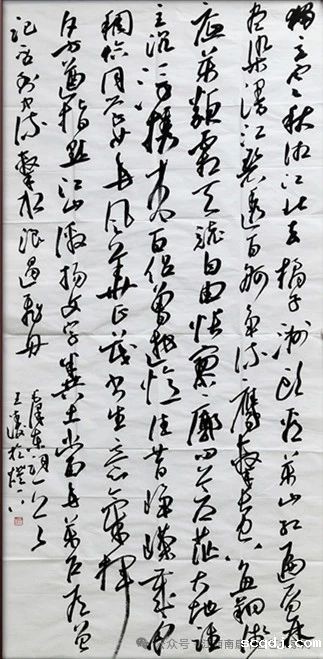 独立寒秋湘江北去橘子洲头看万山红遍层林
尽染漫江碧透百舸争流鹰击长空鱼翔浅
底万类霜天竞自由怅寥廓问苍茫大地谁
主沉浮携来百侣曾游忆往昔峥嵘岁月
稠恰同学少年风华正茂书生意气挥
斥方遒指点江山激扬文字粪土当年万户侯曾
记否到中流击水浪遏飞舟
毛泽东词
公众号
scqdj.com